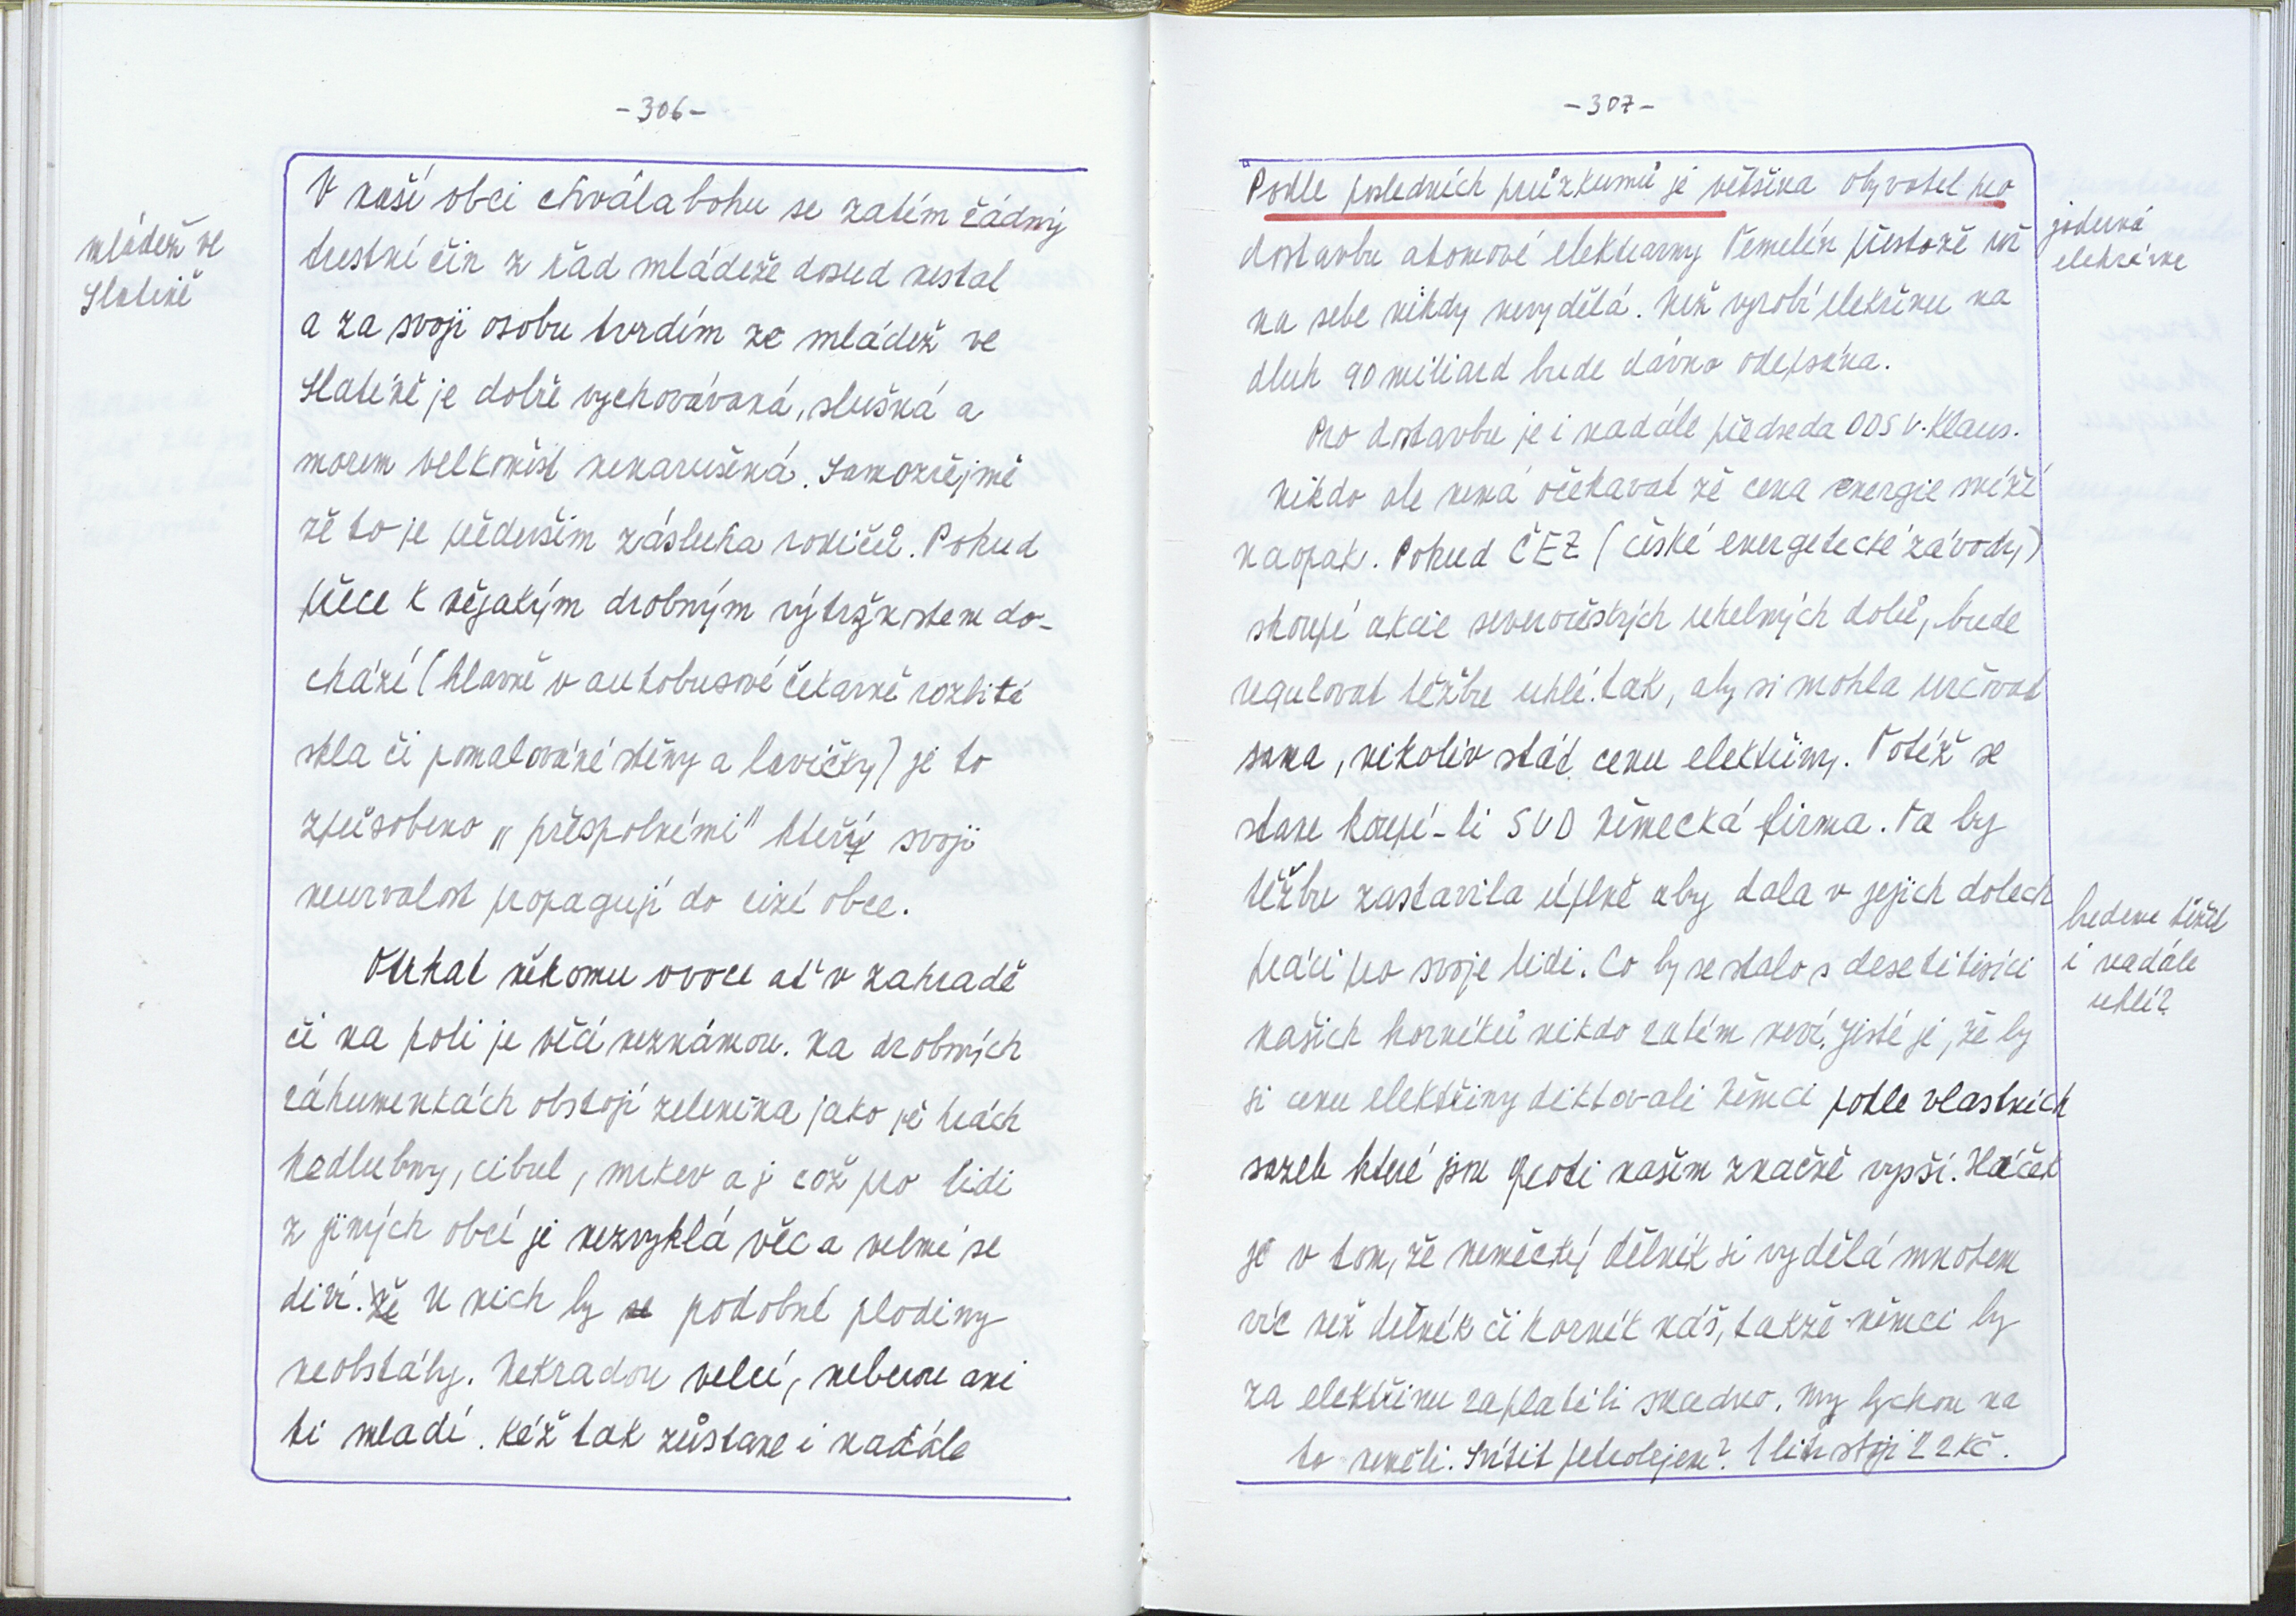 -306-
mládež ve
Slatině
V naší obci chvála bohu se zatím žádný
trestní čin z řad mládeže dosud nestal
a za svoji osobu tvrdím ze mládež ve
Slatině je dobře vychovávaná, slušná a
morem velkoměst nenarušená. Samozřejmě
že to je především zásluha rodičů. Pokud
přece k nějakým drobným výtržnostem do-
chází (hlavně v autobusové čekárně rozbité
skla či pomalované stěny a lavičky) je to
způsobeno „přespolními" kteří svoji
neurvalost propagují do cizí obce.
Otrhat někomu ovoce ať v zahradě
či na poli je věcí neznámou. Na drobných
záhumenkách obstojí zelenina jako je hrách
kedlubny, cibul, mrkev a j což pro lidi
z jiných obcí je nezvyklá věc a velmi se
diví. že U nich by se podobné plodiny
neobstály. Nekradou velcí, neberou ani
ti mladí. Kéž tak zůstane i nadále
-307-
Podle posledních průzkumů je většina obyvatel pro
jaderná
elektrárna
dostavbu atomové elektrarny Temelín přestože už
na sebe nikdy nevydělá. Než vyrobí elektřinu na
dluh 90 miliard bude dávno odepsána.
Pro dostavbu je i nadále předseda ODS V. Klaus.
Nikdo ale nemá očekavat že cena energie sníží
naopak. Pokud ČEZ (české energetické závody)
skoupí akcie severočeských uhelných dolů, bude
regulovat těžbu uhlí tak, aby si mohla určovat
sama, nikoliv stát cenu elektřiny. Totéž se
stane koupí-li SUD Německá firma. Ta by
těžbu zastavila úplně aby dala v jejich dolech
práci pro svoje lidi. Co by se stalo s desetitisíci
budeme těžit
i nadále
uhlí?
našich horníků nikdo zatím neví. Jisté je, že by
si cenu elektřiny diktovali Němci podle vlastních
sazeb které jsou proti našim značně vyšší. Háček
je v tom, že německý dělník si vydělá mnohem
víc než dělník či horník náš, takže němci by
za elektřinu zaplatili snadno. My bychom na
to neměli. Svítit petrolejem? 1 litr stojí 22 Kč.